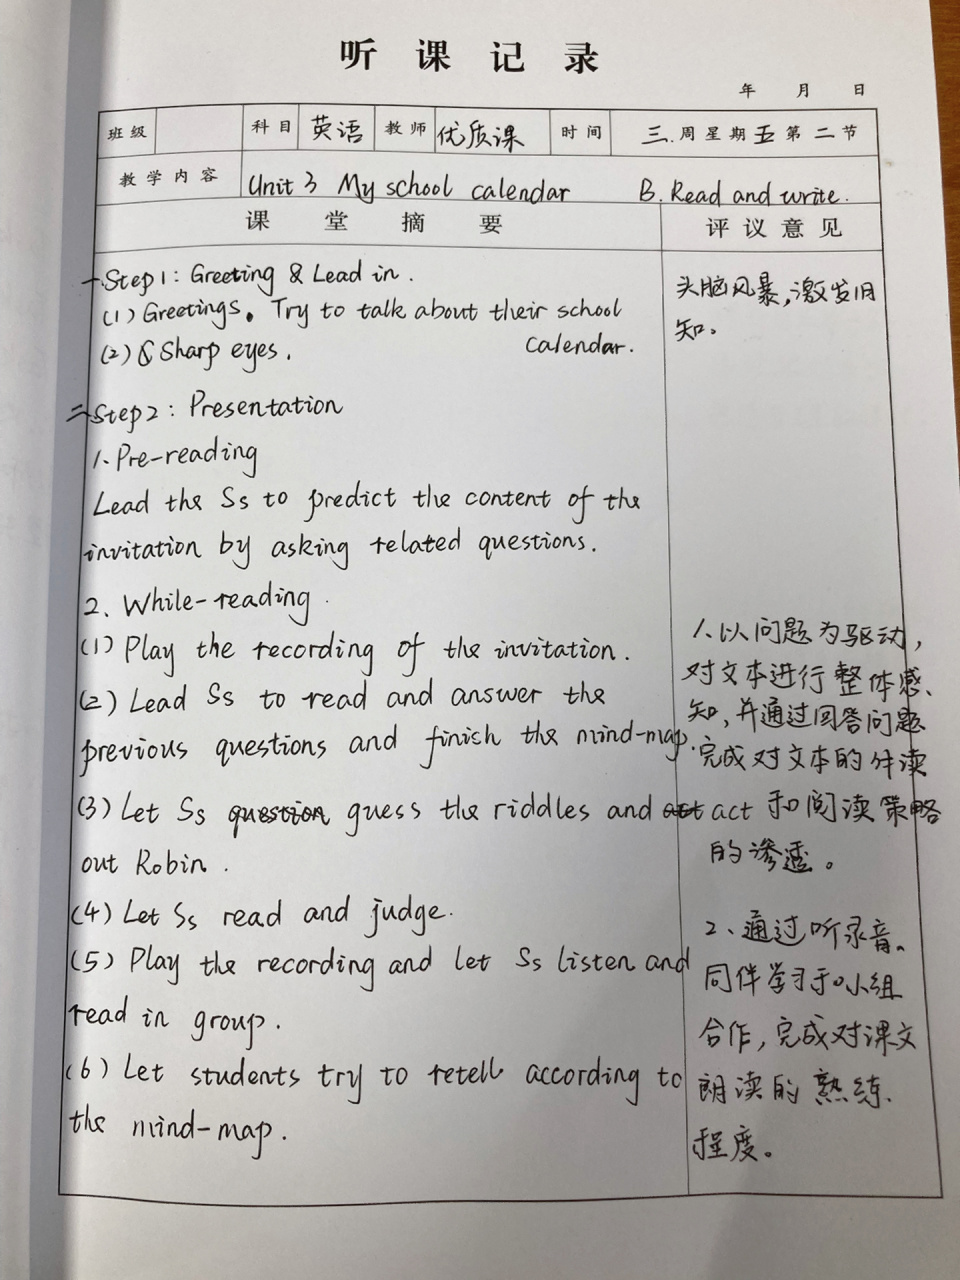 听课记录
年 月 日
班级 科目 英语 教师 优质课 时间 三.周星期五第二节
教学内容 Unit 3 My school calendar B. Read and write.
课堂摘要 评议意见
一、Step1: Greeting & Lead in.
(1) Greetings. Try to talk about their school
calendar.
(2) Sharp eyes.
头脑风暴,激发旧
知。
二、Step2: Presentation
1. Pre-reading
Lead the Ss to predict the content of the
invitation by asking related questions.
2. While-reading.
(1) Play the recording of the invitation.
(2) Lead Ss to read and answer the
previous questions and finich the mind-map.
(3) Let Ss guess the riddles and act
out Robin.
(4) Let Ss read and judge.
(5) Play the recording and let Ss listen and
read in group.
(6) Let students try to retell according to
the mind-map.
1.以问题为驱动,
对文本进行整体感
知,并通过回答问题
完成对文本的 读
和阅读策略
的渗透。
2、通过听录音、
同伴学习和小组
合作,完成对课文
朗读的熟练
程度。